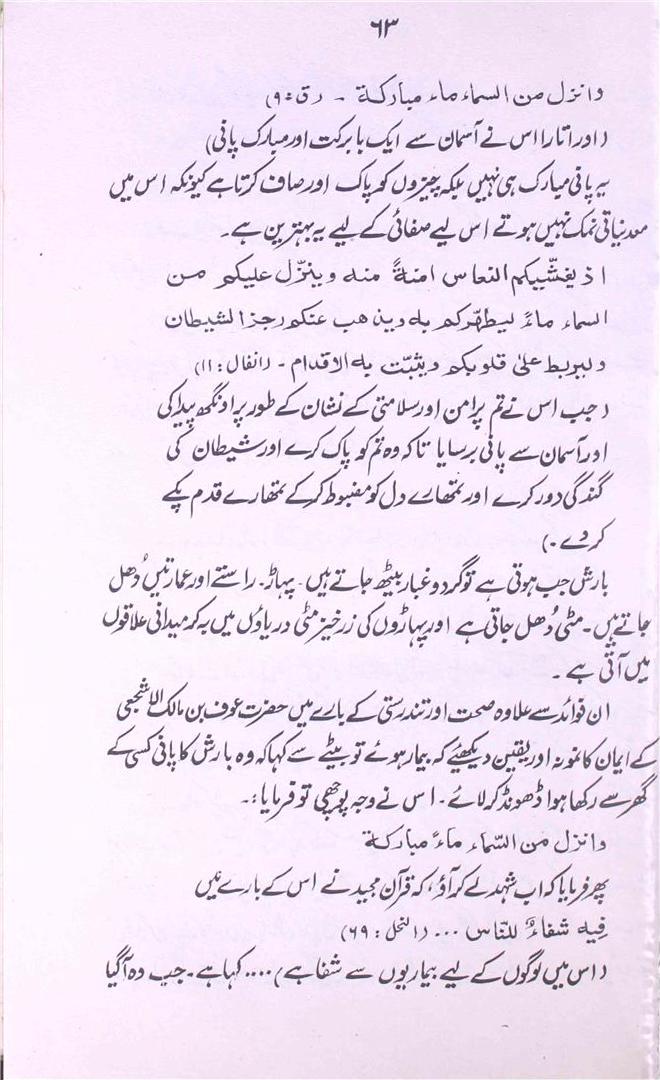 ۶۳
وانزل من السماء ماء مبارکة ۔ (ق : ۹)
(اور اتارا اس نے آسمان سے ایک بابرکت اور مبارک پانی)
یہ پانی مبارک ہی نہیں بلکہ چیزوں کو پاک اور صاف کرتا ہے کیونکہ اس میں
معدنیاتی نمک نہیں ہوتے اس لیے صفائی کے لیے یہ بہترین ہے۔
اذ یغشّیکم النعاس امنةً منه وینزّل علیکم من
السماء ماءً لیطهّرکم به ویذهب عنکم رجز الشیطان
ولیربط علیٰ قلوبکم ویثبّت به الاقدام ۔ (انفال : ۱۱)
(جب اس نے تم پر امن اور سلامتی کے نشان کے طور پر اونگھ پیدا کی
اور آسمان سے پانی برسایا تاکہ وہ تم کو پاک کرے اور شیطان کی
گندگی دور کرے اور تمھارے دل کو مضبوط کرکے تمھارے قدم پکے
کر دے۔)
بارش جب ہوتی ہے تو گرد و غبار بیٹھ جاتے ہیں۔ پہاڑ۔ راستے اور عمارتیں دُھل
جاتے ہیں۔ مٹی دُھل جاتی ہے اور پہاڑوں کی زرخیز مٹی دریاؤں میں بہ کر میدانی علاقوں
میں آتی ہے۔
ان فوائد سے علاوہ صحت اور تندرستی کے بارے میں حضرت عوف بن مالک الاشجعی
کے ایمان کا نمونہ اور یقین دیکھئیے کہ بیمار ہوئے تو بیٹے سے کہا کہ وہ بارش کا پانی کسی کے
گھر سے رکھا ہوا ڈھونڈ کر لائے۔ اس نے وجہ پوچھی تو فرمایا :۔
وانزل من السّماء ماءً مبارکة
پھر فرمایا کہ اب شہد لے کر آؤ، کہ قرآن مجید نے اس کے بارے میں
فِیه شفاءٌ للنّاس ... (النحل : ۶۹)
(اس میں لوگوں کے لیے بیماریوں سے شفا ہے) .... کہا ہے۔ جب وہ آگیا